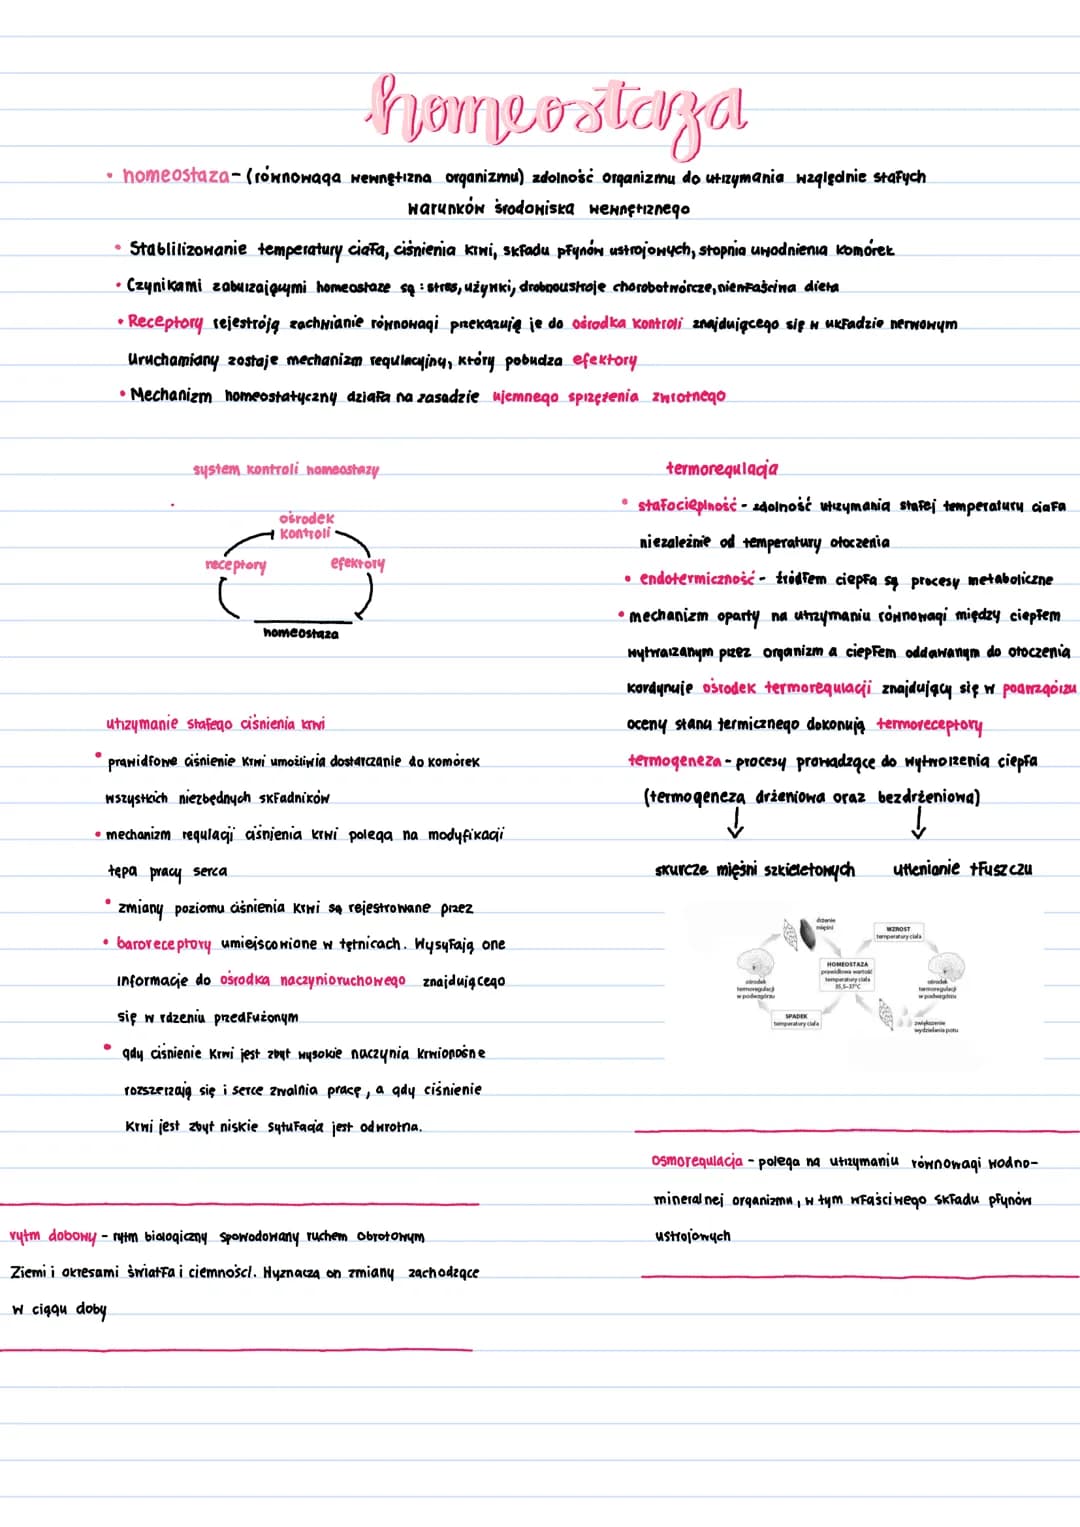 homeostaza
• homeostaza - (równowaga wewnętrzna organizmu) zdolność organizmu do utrzymania względnie stałych
warunków środowiska wewnętrznego
• Stablilizowanie temperatury ciała, ciśnienia krwi, składu płynów ustrojowych, stopnia uwodnienia komórek
• Czynikami zaburzającymi homeostaze są : stres, używki, drobnoustroje chorobotwórcze, nienłaściwa dieta
• Receptory rejestrują zachwianie równowagi przekazują je do ośrodka kontroli znajdującego się w układzie nerwowym
Uruchamiany zostaje mechanizm regulacyjny, który pobudza efektory
• Mechanizm homeostatyczny działa na zasadzie ujemnego sprzężenia zwrotnego
system kontroli homeostazy
ośrodek
kontroli
receptory
efektory
homeostaza
utrzymanie stałego ciśnienia krwi
• prawidłowe ciśnienie krwi umożliwia dostarczanie do komórek
wszystkich niezbędnych składników
• mechanizm regulacji ciśnienia krwi polega na modyfikacji
tępa pracy serca
• zmiany poziomu ciśnienia krwi są rejestrowane przez
• baroreceptory umiejscowione w tętnicach. Wysyłają one
informacje do ośrodka naczynioruchowego znajdującego
się w rdzeniu przedłużonym
• gdy ciśnienie krwi jest zbyt wysokie naczynia krwionośne
rozszerzają się i serce zwalnia pracę, a gdy ciśnienie
krwi jest zbyt niskie sytułacja jest odwrotna.
rytm dobowy - rytm biologiczny spowodowany ruchem obrotowym
Ziemi i okresami światła i ciemności. Wyznacza on zmiany zachodzące
w ciągu doby
termoregulacja
• stałocieplność - zdolność utrzymania stałej temperatury ciała
niezależnie od temperatury otoczenia
• endotermiczność - źródłem ciepła są procesy metaboliczne
• mechanizm oparty na utrzymaniu równowagi między ciepłem
wytwarzanym przez organizm a ciepłem oddawanym do otoczenia
kordynuje ośrodek termoregulacji znajdujący się w podwzgórzu
oceny stanu termicznego dokonują termoreceptory
termogeneza - procesy prowadzące do wytworzenia ciepła
(termogeneza drżeniowa oraz bezdrżeniowa)
skurcze mięśni szkieletowych utlenianie tłuszczu
drżenie
mięśni
WZROST
temperatury ciała
HOMEOSTAZA
prawidłowa wartość
temperatury ciała
35,5–37°C
ośrodek
termoregulacji
w podwzgórzu
ośrodek
termoregulacji
w podwzgórzu
SPADEK
temperatury ciała
zwiększenie
wydzielania potu
osmoregulacja - polega na utrzymaniu równowagi wodno-
mineralnej organizmu, w tym właściwego składu płynów
ustrojowych